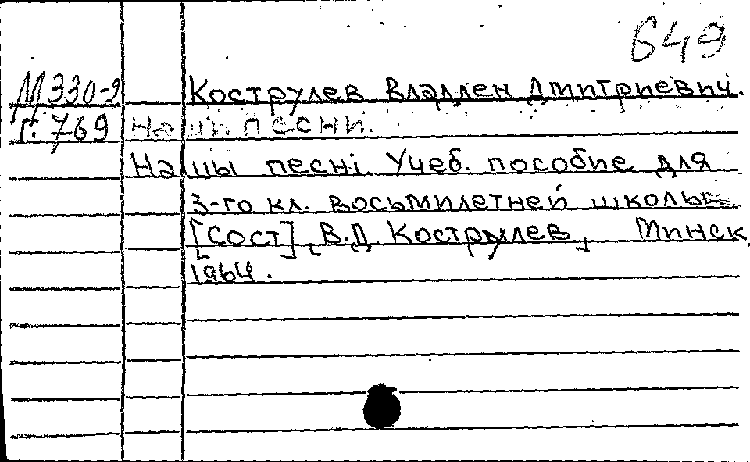 649
М330-9 Кострулев Владлен Дмитриевич.
г. 769 Наши песни.
Нашы песнi. Учеб. пособие для
3-го кл. восьмилетней школы
[Сост] В.Д. Кострулев, Минск,
1964.